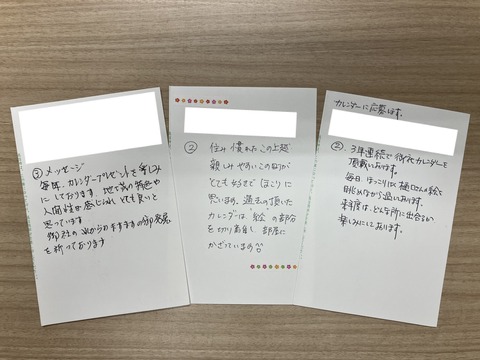 ③メッセージ
毎年、カレンダープレゼントを楽しみ
にしております。地域の特色や
人間性が感じられ、とても良いと
思っています。
御社のこれからのますますの御発展
を祈っております
②
住み慣れたこの上越
親しみやすいこの町が
とても好きで ほこりに
思います。過去の頂いた
カレンダーは、絵の部分
を切り高田し、部屋に
かざっています
カレンダーに応募します。
②. 3年連続で御社カレンダーを
頂戴しております。
毎日、ほっこりに 樋口さんの絵を
眺めながら過しております。
来年度は、どんな所に出合るか
楽しみにしております。